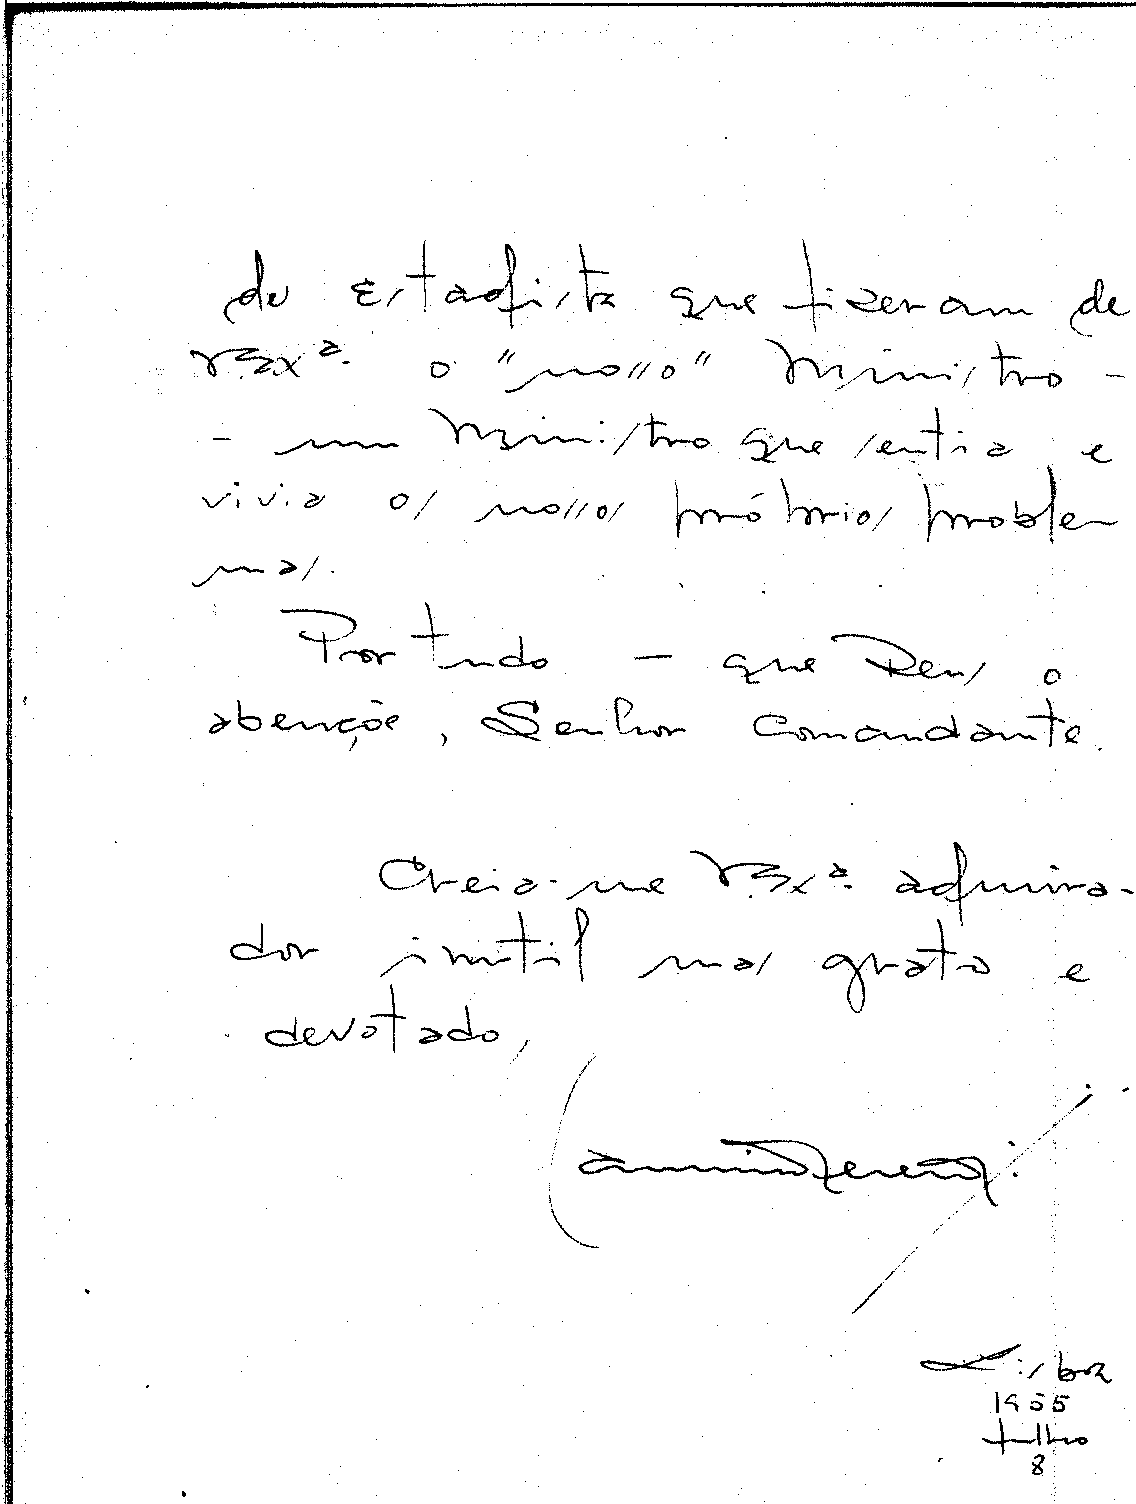 de Estadista que fizeram de
V. Exª. o "nosso" Ministro -
- um Ministro que sentia e
vivia os nossos próprios proble
mas.
Por tudo - que Deus o
abençõe, Senhor Comandante.
Creia-me V. Exª. admira-
dor inutil mas grato e
devotado,
Lisboa
1955
Julho
8